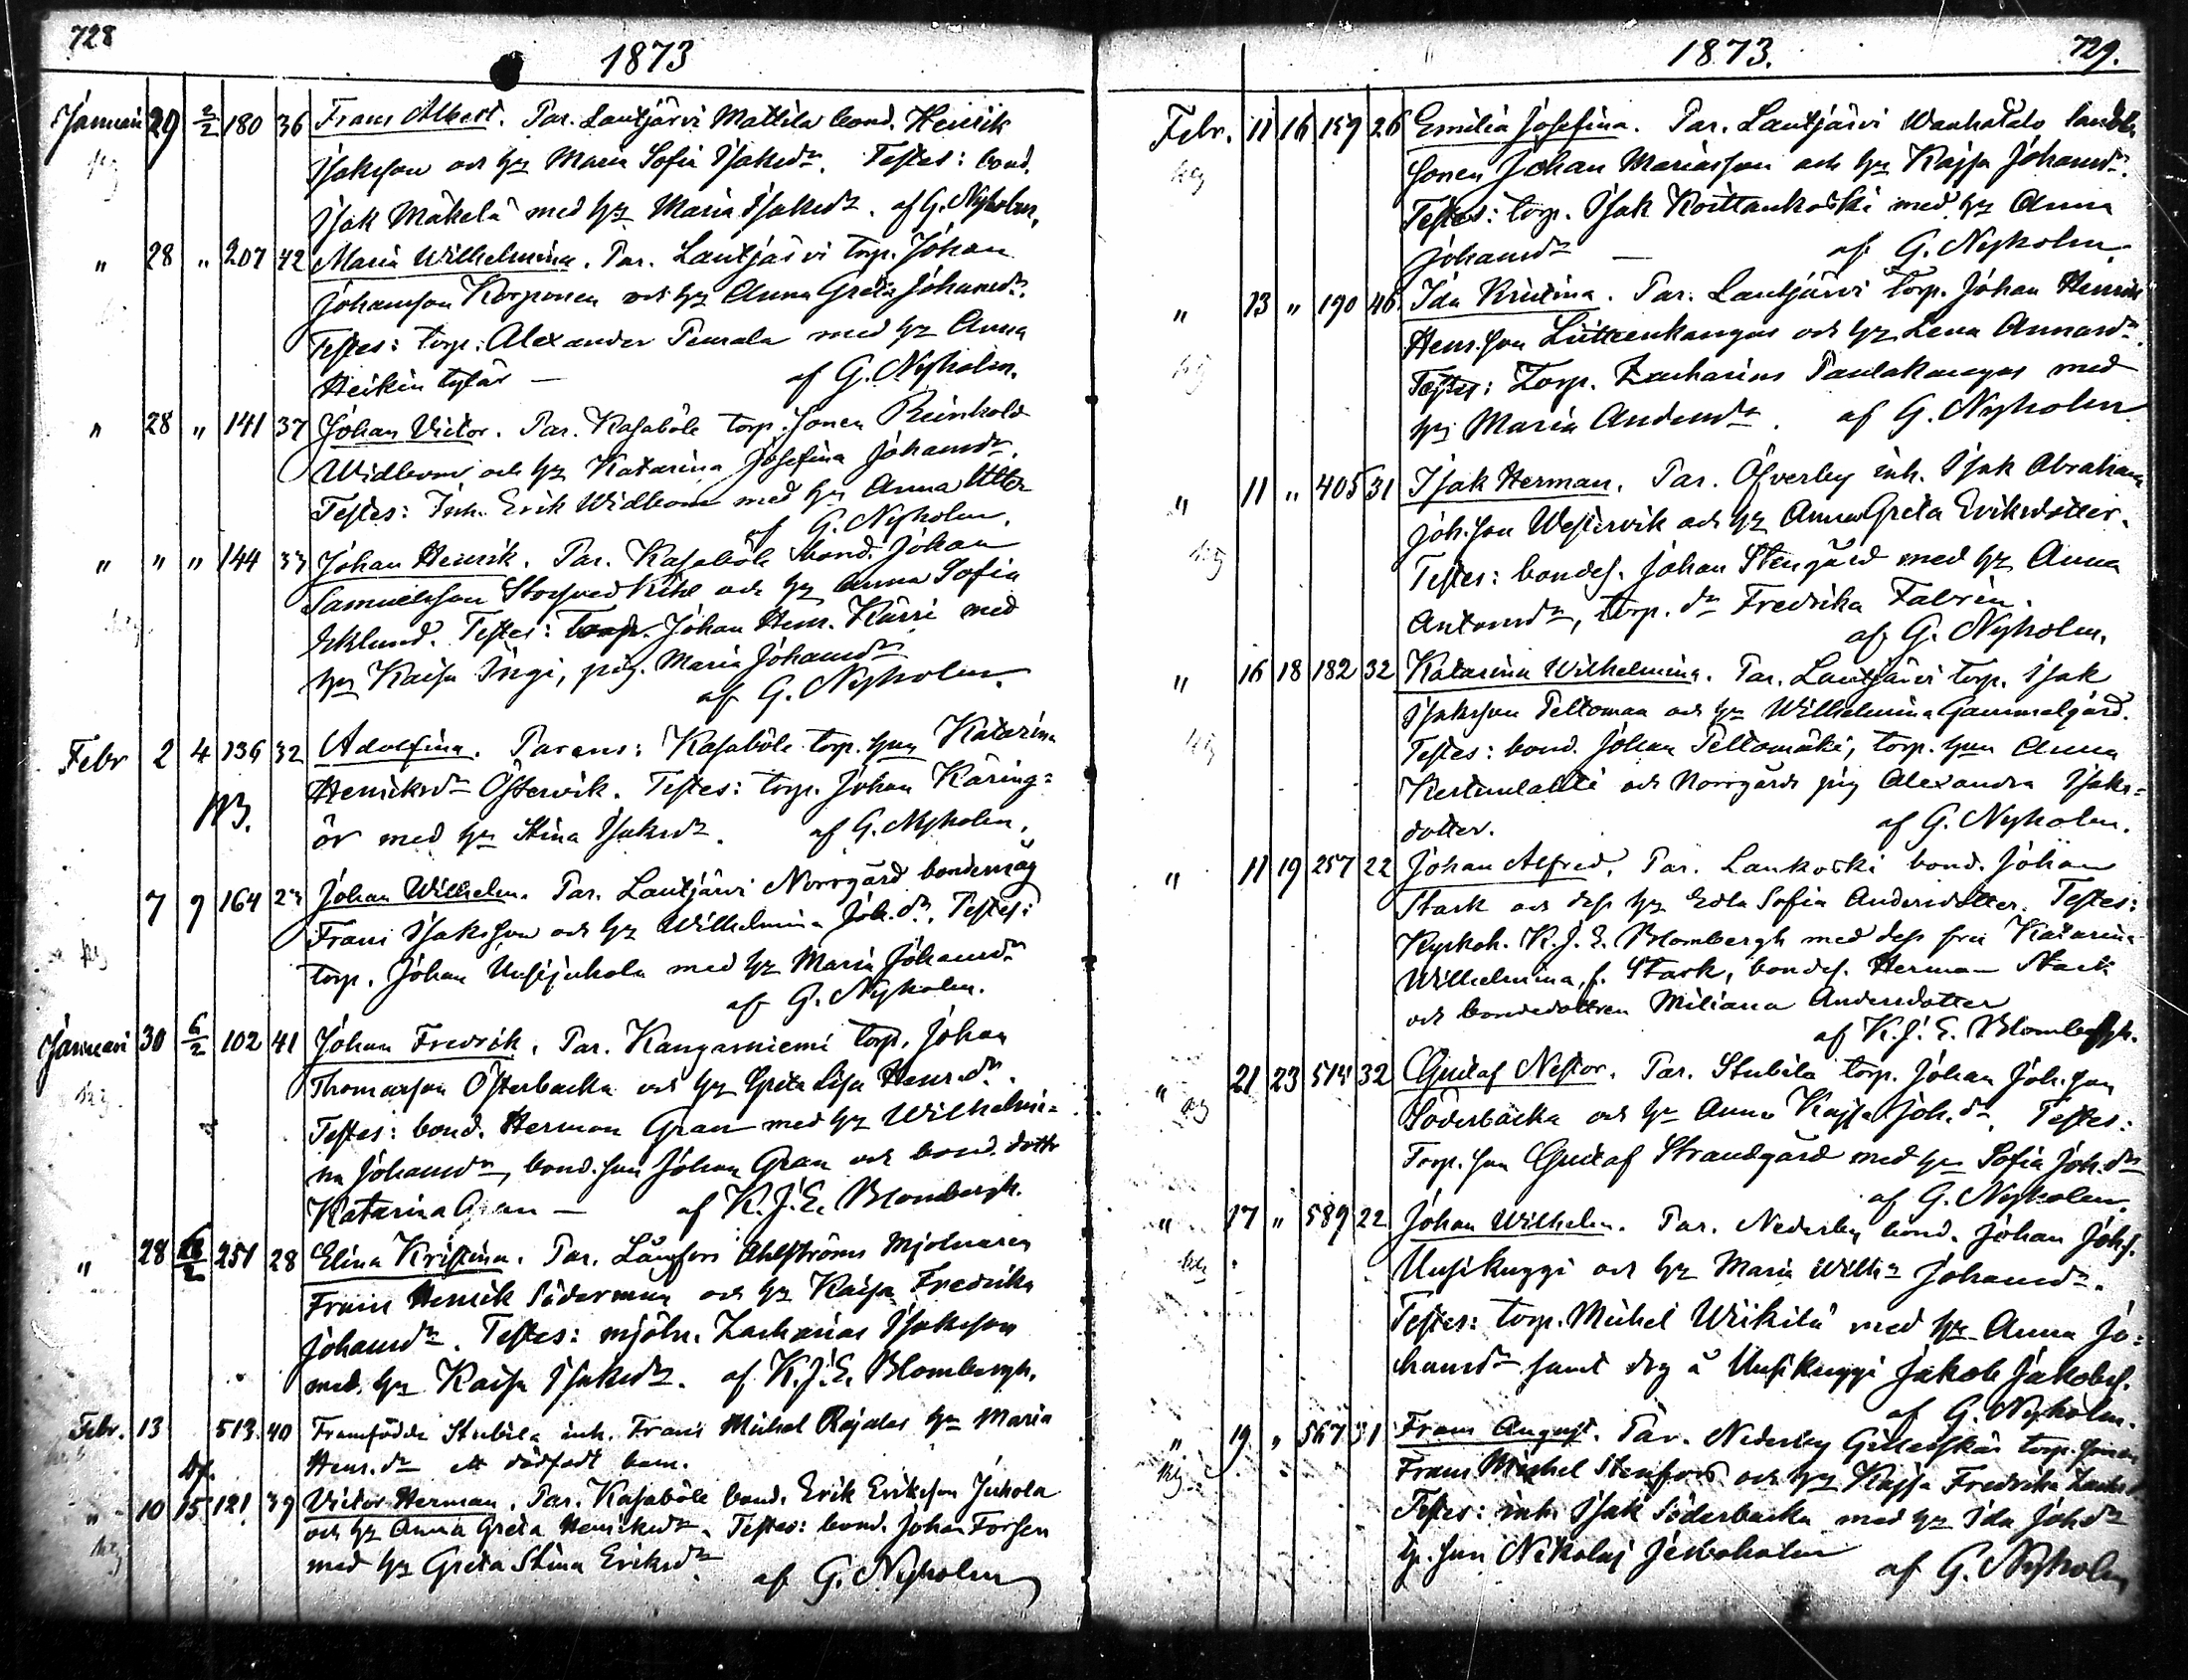 728
1873
Januari 29 2/2 180 36 Frans Albert. Par. Lautjärvi Mattila bond. Henrik
Isakson och hu Maria Sofia Isaksdr. Testes: bond.
Isak Mäkelä med hu Maria Isaksdr. af G. Nyholm.
" 28 " 207 42 Maria Wilhelmina. Par. Lautjärvi torp. Johan
Johansson Korponen och hu Anna Greta Johansdr.
Testes: torp. Alexander Peurala med hu Anna
Heikin tytär — af G. Nyholm.
" 28 " 141 37 Johan Victor. Par. Kasaböle torp. sonen Reinhold
Widbom och hu Katarina Josefina Johansdr.
Testes: Inh. Erik Widbom med hu Anna Utter
af G. Nyholm.
" " " 144 33 Johan Henrik. Par. Kasaböle bond. Johan
Samuelsson Storsved Kihl och hu Anna Sofia
Esklund. Testes: torp. Johan Henr. Kärri med
hu Kaisa Ingi, pig. Maria Johansdr
af G. Nyholm.
Febr 2 4 136 32 Adolfina. Parens: Kasaböle torp. hun Katarina
Henriksdr Östervik. Testes: torp. Johan Käring=
ör med hu Stina Isaksdr. af G. Nyholm.
NB.
7 9 164 23 Johan Wilhelm. Par. Lautjärvi Norrgård bondemåg
Frans Isaksson och hu Wilhelmina Joh.dr. Testes:
torp. Johan Uusijuhola med hu Maria Johansdr
af G. Nyholm.
Januari 30 6/2 102 41 Johan Fredrik. Par. Kangasniemi torp. Johan
Thomasson Österbacka och hu Greta Lisa Henr.dr.
Testes: bond. Herman Gran med hu Wilhelmi=
na Johansdr, bond. son Johan Gran och bond. dottr
Katarina Gran — af K. J. E. Blombergh.
" 28 /2 251 28 Elina Kristina. Par. Långfors Ahlströms Mjolnaren
Frans Henrik Söderman och hu Kaisa Fredrika
Johansdr. Testes: mjöln. Zacharias Isaksson
med hu Kaisa Isaksdr. af K. J. E. Blombergh.
Febr. 13 513. 40 Framfödde Stubila inh. Frans Michel Rajalas hu Maria
Henr.dr ett dödfödt barn.
df.
" 10 15 121 39 Victor Herman. Par. Kasaböle bond. Erik Eriksson Juhola
och hu Anna Greta Henriksdr. Testes: bond. Johan Forsen
med hu Greta Stina Eriksdr. af G. Nyholm
1873.
729.
Febr. 11 16 159 26 Emilia Josefina. Par. Lautjärvi Wanhatalo
sonen Johan Mariasson och hu Kajsa Johansdr.
Testes: torp. Isak Koittankoski med hu Anna
Johansdr — af G. Nyholm.
" 13 " 190 46 Ida Kristina. Par. Lautjärvi torp. Johan Henrik
Henr.son Lutteenkangas och hu Lena Annasdr.
Testes: Torp. Zacharias Paulakangas med
hu Maria Andersdr. af G. Nyholm
" 11 " 405 31 Isak Herman. Par. Öfverby inh. Isak Abraham
Joh.son Westervik och hu Anna Greta Eriksdotter.
Testes: bondes. Johan Stengård med hu Anna
Antonsdr, torp. dr Fredrika Fabrin.
af G. Nyholm.
" 16 18 182 32 Katarina Wilhelmina. Par. Lautjärvi torp. Isak
Isaksson Peltomaa och hu Wilhelmina Gammelgård.
Testes: bond. Johan Peltomäki, torp. hun Anna
Kertunlahti och Norrgårds pig Alexandra Isaks=
dotter. af G. Nyholm.
" 11 19 257 22 Johan Alfred. Par. Lankoski bond. Johan
Stark och dess hu Edla Sofia Andersdotter. Testes:
Kyrkoh. K. J. E. Blombergh med dess fru Katarina
Wilhelmina, f. Stark, bondes. Herman Stark
och bondedottren Miliana Andersdotter
af K. J. E. Blombergh.
" 21 23 515 32 Gustaf Nestor. Par. Stubila torp. Johan Joh.son
Söderbacka och hu Anna Kajsa Joh.dr. Testes:
Torp. son Gustaf Strandgård med hu Sofia Joh.dr
af G. Nyholm.
" 17 " 589 22 Johan Wilhelm. Par. Nederby bond. Johan Johs.
Uusikuggi och hu Maria Wilh:a Johansdr.
Testes: torp. Michel Wiikilä med hu Anna Jo=
hansdr samt drg å Uusikuggi Jakob Jakobs.
af G. Nyholm.
" 19 " 567 31 Frans August. Par. Nederby Gillesskär torp. sonen
Frans Michel Stenfors och hu Kajsa Fredrika
Testes: inh. Isak Söderbacka med hu Ida Johsdr
tp. son Nikolaj Jervoholm af G. Nyholm